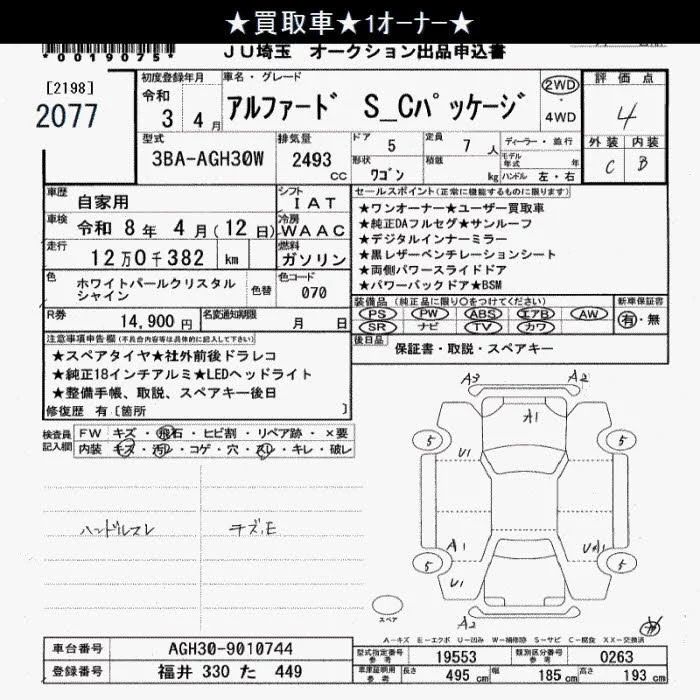 ★買取車★1オーナー★
*0019075*
JU埼玉 オークション出品申込書
[2198]
2077
初度登録年月
令和
3 年 4 月
車名・グレード
アルファード S_Cパッケージ
2WD
・
4WD
評価点
4
外装 内装
C B
型式
3BA-AGH30W
排気量
2493 cc
ドア 5
定員 7 人
形状 ワゴン
積載 kg
ディーラー・並行
モデル年式 年
ハンドル 左・右
車歴 自家用
シフト IAT
車検 令和 8年 4月(12日)
冷房 WAAC
走行 12万0千382 km
燃料 ガソリン
色 ホワイトパールクリスタル
シャイン
色替
色コード 070
R券 14,900円
名変通知期限 月 日
セールスポイント(正常に機能するものに限ります)
★ワンオーナー★ユーザー買取車
★純正DAフルセグ★サンルーフ
★デジタルインナーミラー
★黒レザーベンチレーションシート
★両側パワースライドドア
★パワーバックドア★BSM
装備品 (純正品に限り○をつけてください)
PS PW ABS エアB AW
SR ナビ TV カワ
新車保証書
有・無
後日品 保証書・取説・スペアキー
注意事項申告欄(不具合内容等は具体的に記入して下さい)
★スペアタイヤ★社外前後ドラレコ
★純正18インチアルミ★LEDヘッドライト
★整備手帳、取説、スペアキー後日
修復歴 有[箇所 ]
検査員記入欄
FW キズ・飛石・ヒビ割・リペア跡・×要
内装 キズ・汚レ・コゲ・穴・スレ・キレ・破レ
ハンドルスレ
チズ,E
A3 A2
A1
5 5
U1
A1
5 5
U1
A2
スペア
A-キズ E-エクボ U-凹み W-補修跡 S-サビ C-腐食 XX-交換済
車台番号 AGH30-9010744
登録番号 福井 330 た 449
型式指定番号 参考 19553
類別区分番号 参考 0263
車庫証明用 参考 長さ 495 cm 幅 185 cm 高さ 193 cm